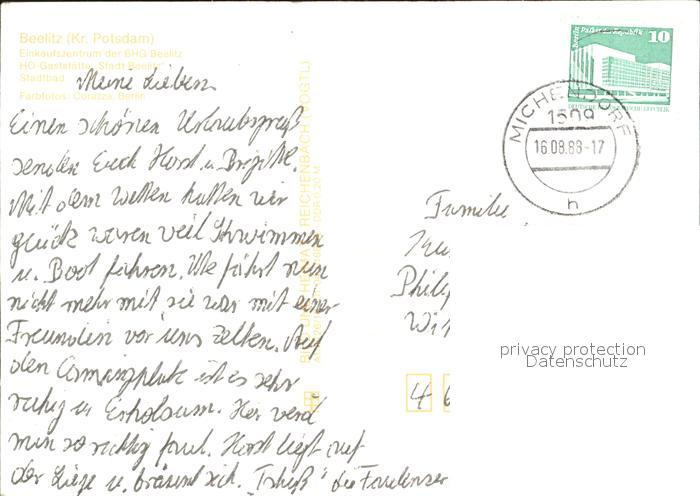 Beelitz (Kr. Potsdam)
Einkaufszentrum der BHG Beelitz
HO-Gaststätte „Stadt Beelitz“
Stadtbad
Farbfotos: Corazza, Berlin
Meine Lieben
Einen schönen Urlaubsgruß
senden Euch Horst u. Brigitte.
Mit dem Wetter hatten wir
glück waren veil Schwimmen
u. Boot fahren. Ute fährt nun
nicht mehr mit sie war mit einer
Freundin vor uns Zelten. Auf
den Campingplatz ist es sehr
ruhig u Erholsam. Hier werd
man so richtig faul. Horst liegt auf
der Liege u. bräunt sich. Tschüß die Faulenzer
BILD UND HEIMAT REICHENBACH (VOGTL)
DDR 0,20 M
Palast der Republik
Berlin
10
DEUTSCHE DEMOKRATISCHE REPUBLIK
MICHENDORF
1509
16.08.88-17
h
Familie
4
privacy protection
Datenschutz